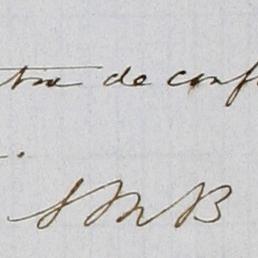 tra de conf
SMB